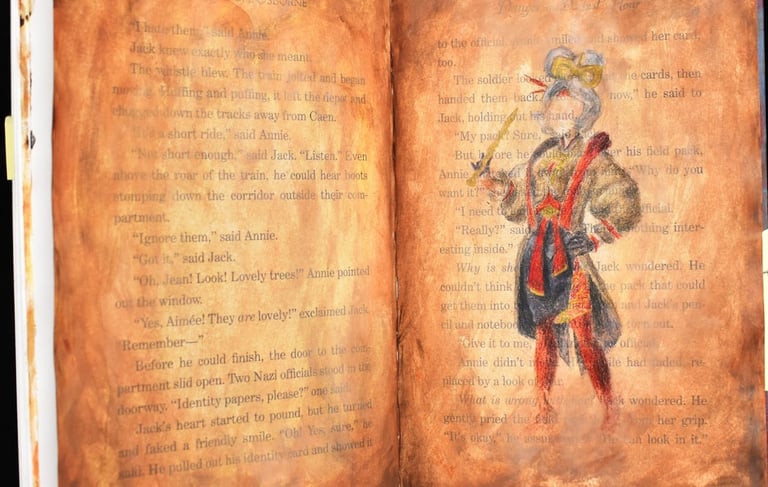 OSBORNE
"I hate them," said Annie.
Jack knew exactly who she meant.
The whistle blew. The train jolted and began
moving. Huffing and puffing, it left the depot and
chugged down the tracks away from Caen.
a short ride," said Annie.
"Not short enough," said Jack. "Listen." Even
above the roar of the train, he could hear boots
stomping down the corridor outside their com-
partment.
"Ignore them," said Annie.
"Got it," said Jack.
"Oh, Jean! Look! Lovely trees!" Annie pointed
out the window.
"Yes, Aimée! They are lovely!" exclaimed Jack.
"Remember—"
Before he could finish, the door to the com-
partment slid open. Two Nazi officials stood in the
doorway. "Identity papers, please?" one said.
Jack's heart started to pound, but he turned
and faked a friendly smile. "Oh! Yes, sure," he
said. He pulled out his identity card and showed it
Danger Hour
to the official. smiled and showed her card,
too.
The soldier the cards, then
handed them back. now," he said to
Jack, holding out his hand.
"My pack? Sure,
But before he his field pack,
Annie "Why do you
want it?"
"I need official.
"Really?" said nothing inter-
esting inside."
Why is she Jack wondered. He
couldn't think the pack that could
get them into and Jack's pen-
cil and notebook torn out.
"Give it to me, official.
Annie didn't smile had faded, re-
placed by a look of fear.
What is wrong Jack wondered. He
gently pried the from her grip.
"It's okay," he can look in it."